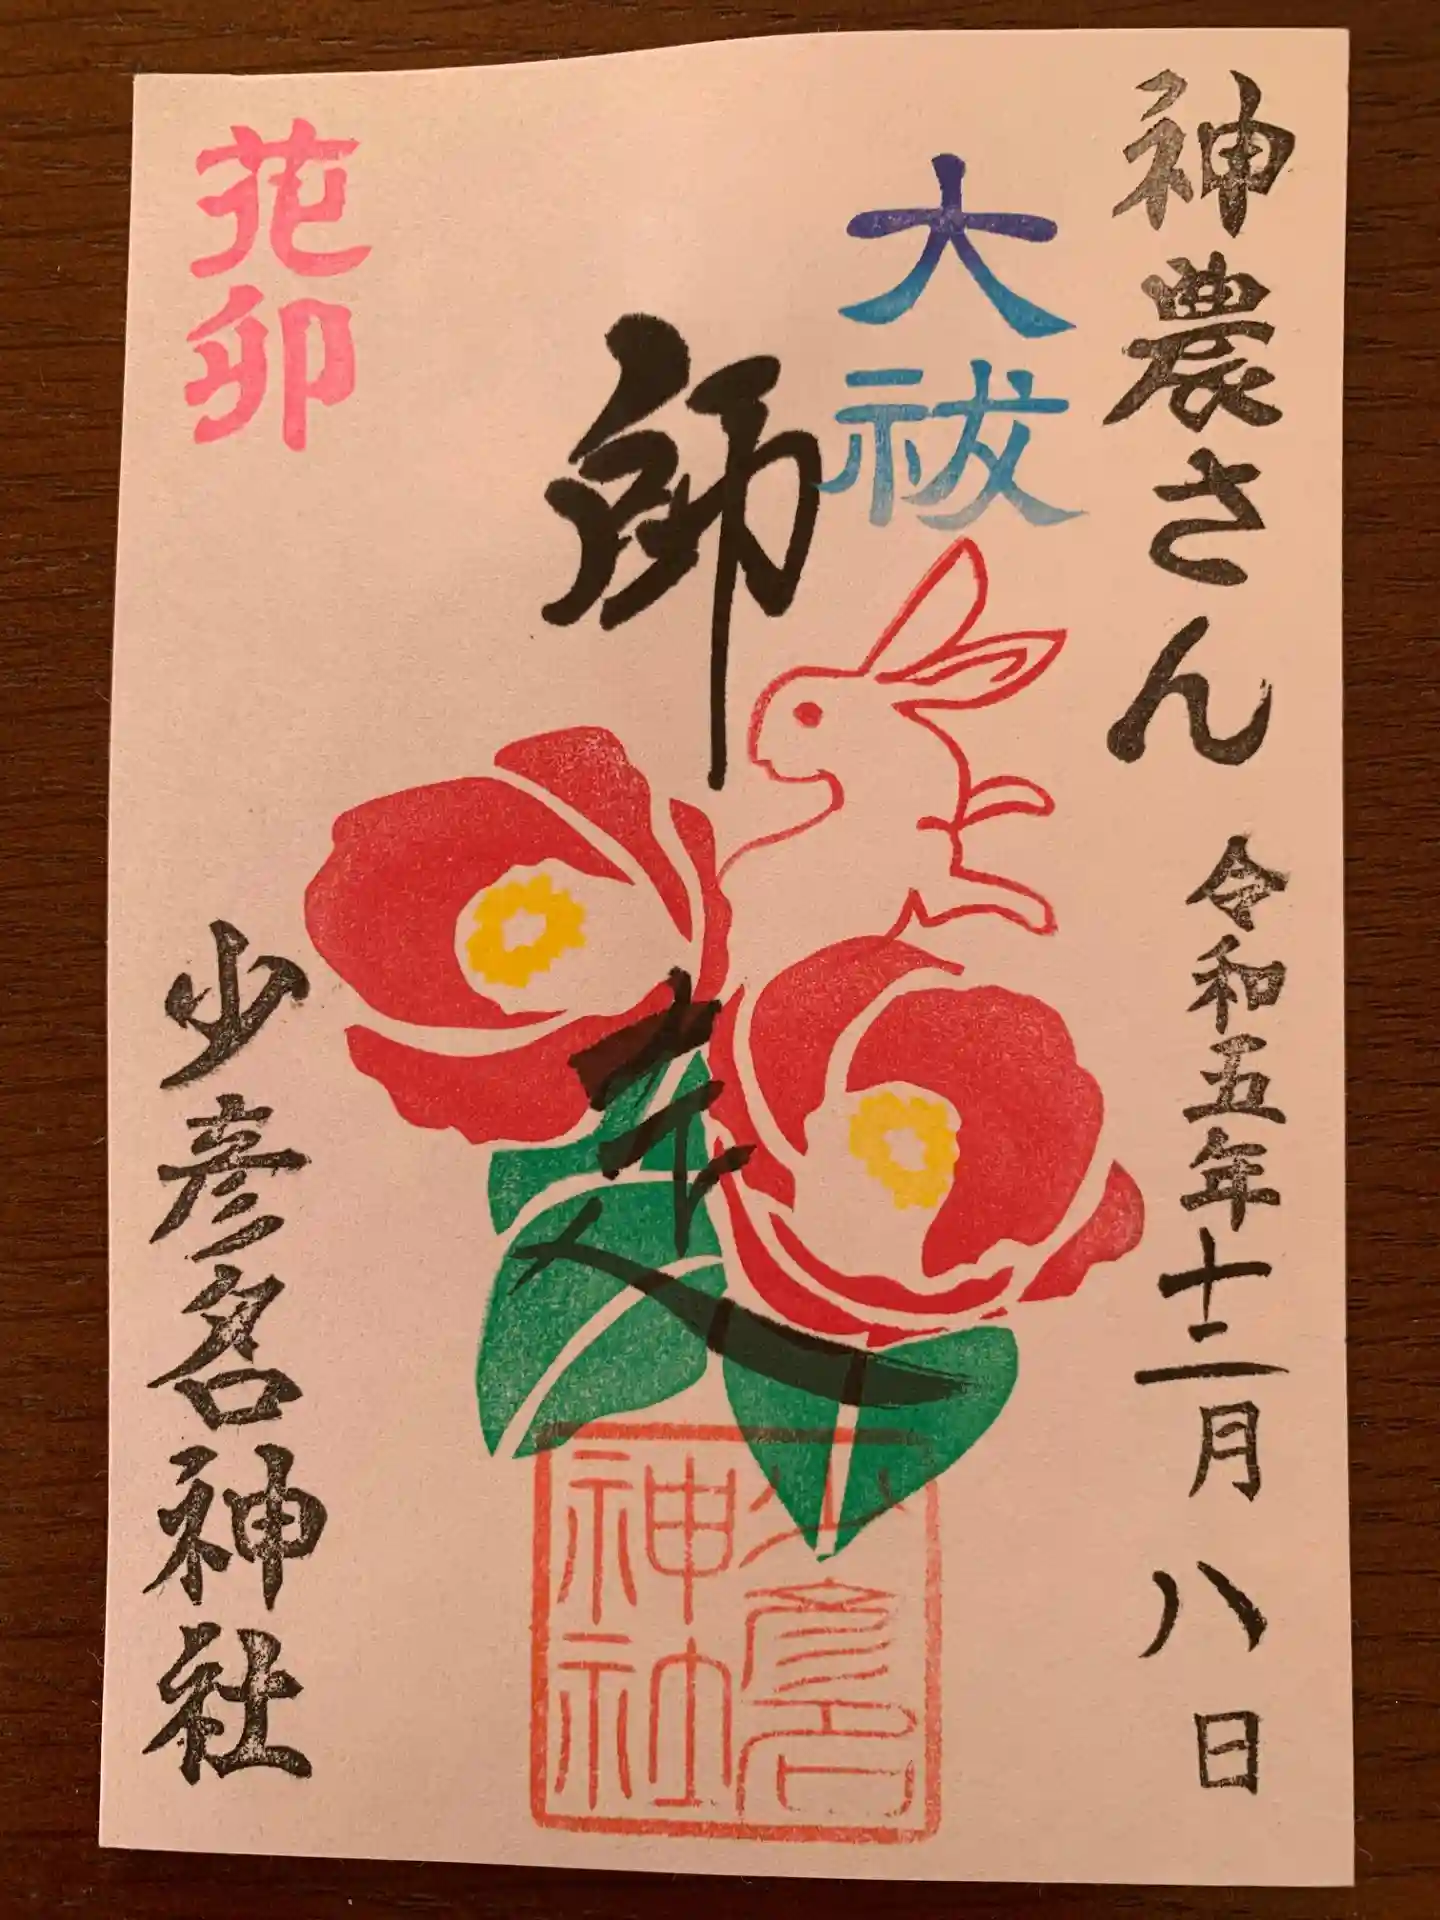 神農さん 令和五年十二月八日
大祓
師走
花卯
少彦名神社
少彦名
神社